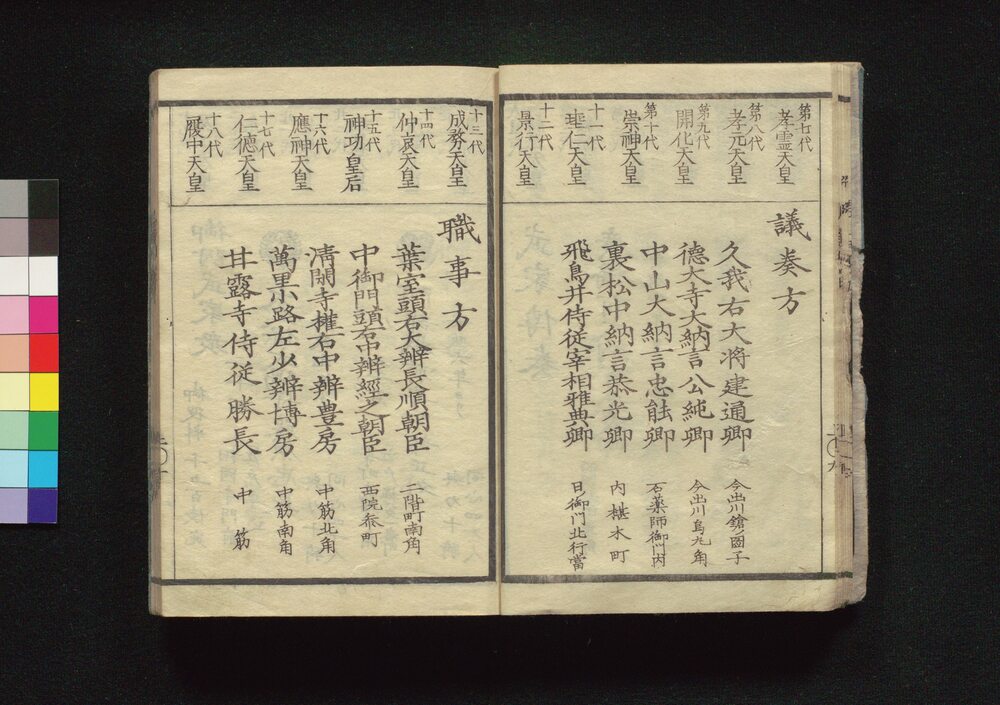 第七代
孝霊天皇
第八代
孝元天皇
第九代
開化天皇
第十代
崇神天皇
十一代
垂仁天皇
十二代
景行天皇
議奏方
久我右大将建通卿 今出川
徳大寺大納言公純卿 今出川烏丸角
中山大納言忠能卿 石薬師御門内
裏松中納言恭光卿 内椹木町
飛鳥井侍従宰相雅典卿 日御門北行當
十三代
成務天皇
十四代
仲哀天皇
十五代
神功皇后
十六代
應神天皇
十七代
仁徳天皇
十八代
履中天皇
職事方
葉室頭右大辨長順朝臣 二階町南角
中御門頭右中辨經之朝臣 西院参町
清閑寺権右中辨豊房 中筋北角
萬里小路左少辨博房 中筋南角
甘露寺侍従勝長 中筋